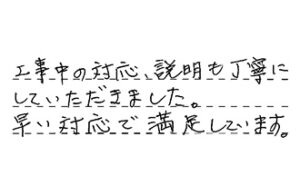 工事中の対応、説明も丁寧に
していただきました。
早い対応で満足しています。